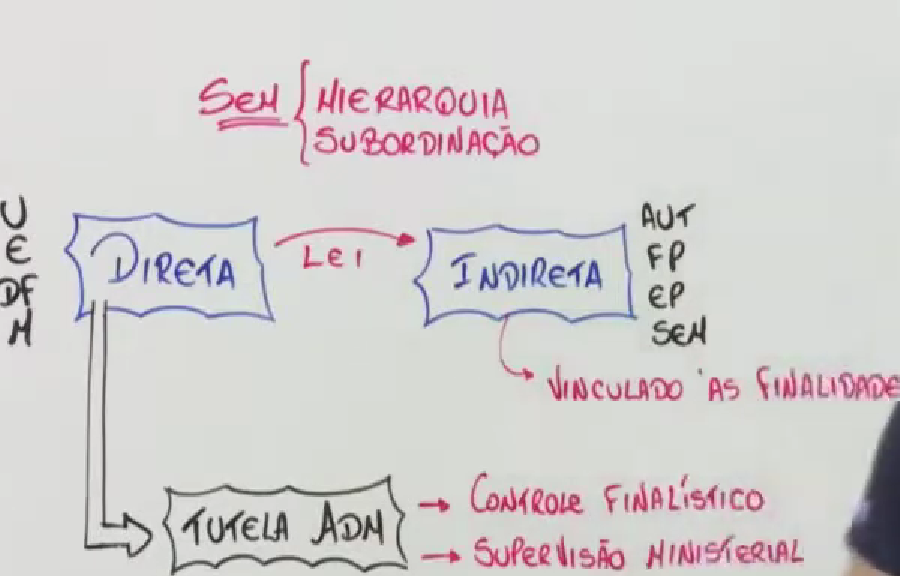 SEM { HIERARQUIA
SUBORDINAÇÃO
U
E
DF
M
DIRETA
LEI
INDIRETA
AUT
FP
EP
SEM
VINCULADO ÀS FINALIDADE
TUTELA ADM
→ CONTROLE FINALÍSTICO
→ SUPERVISÃO MINISTERIAL